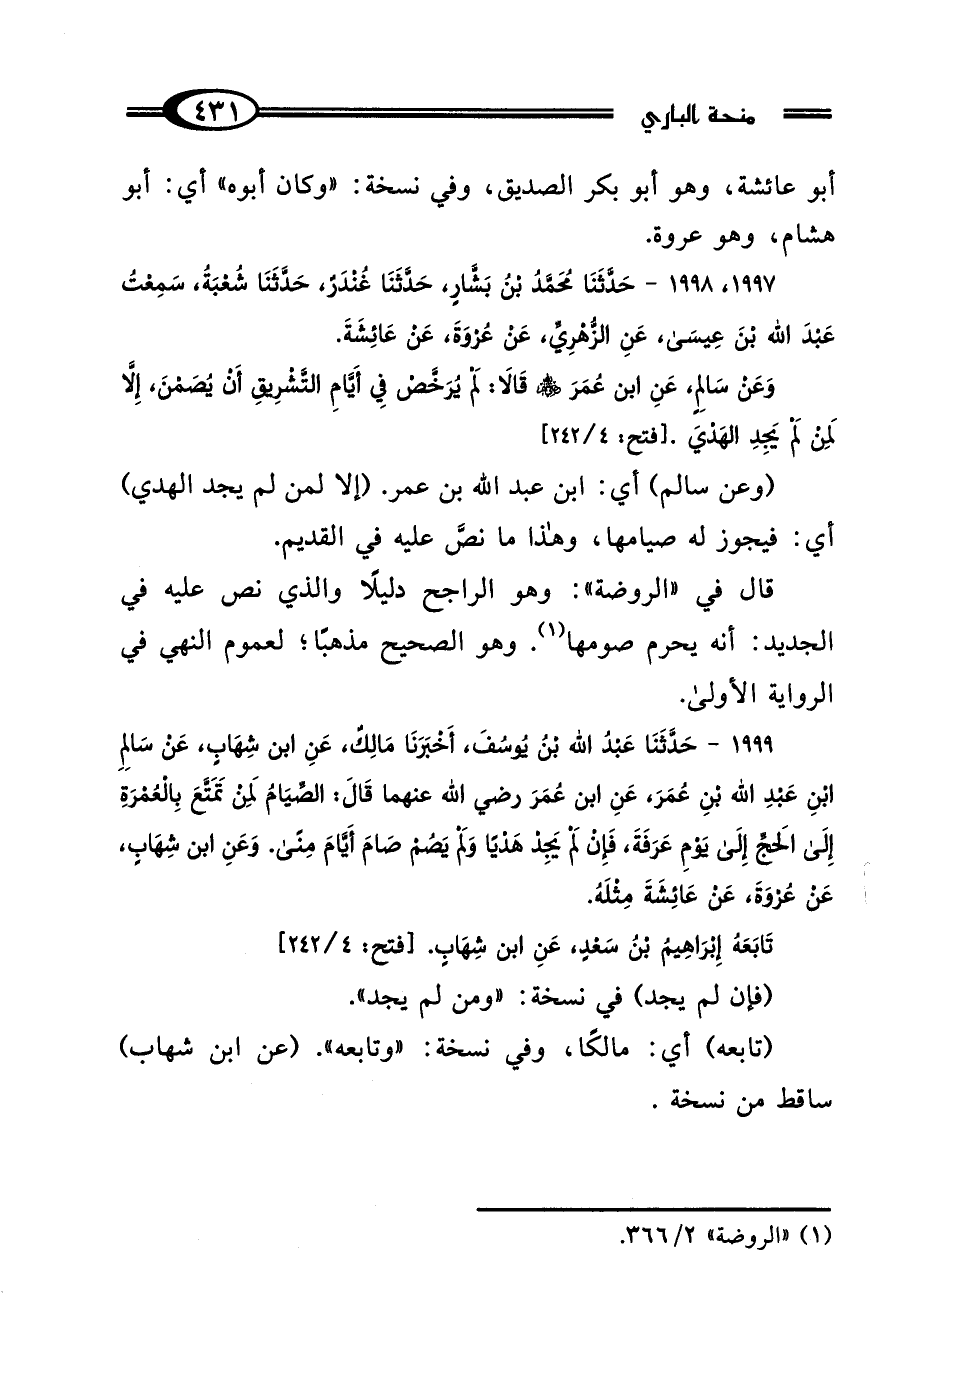 منحة الباري
٤٣١
أبو عائشة، وهو أبو بكر الصديق، وفي نسخة: «وكان أبوه» أي: أبو
هشام، وهو عروة.
١٩٩٧، ١٩٩٨ - حَدَّثَنَا مُحَمَّدُ بْنُ بَشَّارٍ، حَدَّثَنَا غُنْدَرٌ، حَدَّثَنَا شُعْبَةُ، سَمِعْتُ
عَبْدَ الله بْنَ عِيسَىٰ، عَنِ الزُّهْرِيِّ، عَنْ عُرْوَةَ، عَنْ عَائِشَةَ.
وَعَنْ سَالِمٍ، عَنِ ابن عُمَرَ ﵃ قَالَا: لَمْ يُرَخَّصْ فِي أَيَّامِ التَّشْرِيقِ أَنْ يُصَمْنَ، إِلَّا
لِمَنْ لَمْ يَجِدِ الهَدْيَ .[فتح: ٢٤٢/٤]
(وعن سالم) أي: ابن عبد الله بن عمر. (إلا لمن لم يجد الهدي)
أي: فيجوز له صيامها، وهذا ما نصَّ عليه في القديم.
قال في «الروضة»: وهو الراجح دليلًا والذي نص عليه في
الجديد: أنه يحرم صومها(١). وهو الصحيح مذهبًا؛ لعموم النهي في
الرواية الأولىٰ.
١٩٩٩ - حَدَّثَنَا عَبْدُ الله بْنُ يُوسُفَ، أَخْبَرَنَا مَالِكٌ، عَنِ ابن شِهَابٍ، عَنْ سَالِمِ
ابْنِ عَبْدِ الله بْنِ عُمَرَ، عَنِ ابن عُمَرَ رضي الله عنهما قَالَ: الصِّيَامُ لِمَنْ تَمَتَّعَ بِالْعُمْرَةِ
إِلَى الَحجِّ إِلَىٰ يَوْمِ عَرَفَةَ، فَإِنْ لَمْ يَجِدْ هَدْيًا وَلَمْ يَصُمْ صَامَ أَيَّامَ مِنًىٰ. وَعَنِ ابن شِهَابٍ،
عَنْ عُرْوَةَ، عَنْ عَائِشَةَ مِثْلَهُ.
تَابَعَهُ إِبْرَاهِيمُ بْنُ سَعْدٍ، عَنِ ابن شِهَابٍ. [فتح: ٢٤٢/٤]
(فإن لم يجد) في نسخة: «ومن لم يجد».
(تابعه) أي: مالكًا، وفي نسخة: «وتابعه». (عن ابن شهاب)
ساقط من نسخة .
(١) «الروضة» ٣٦٦/٢.